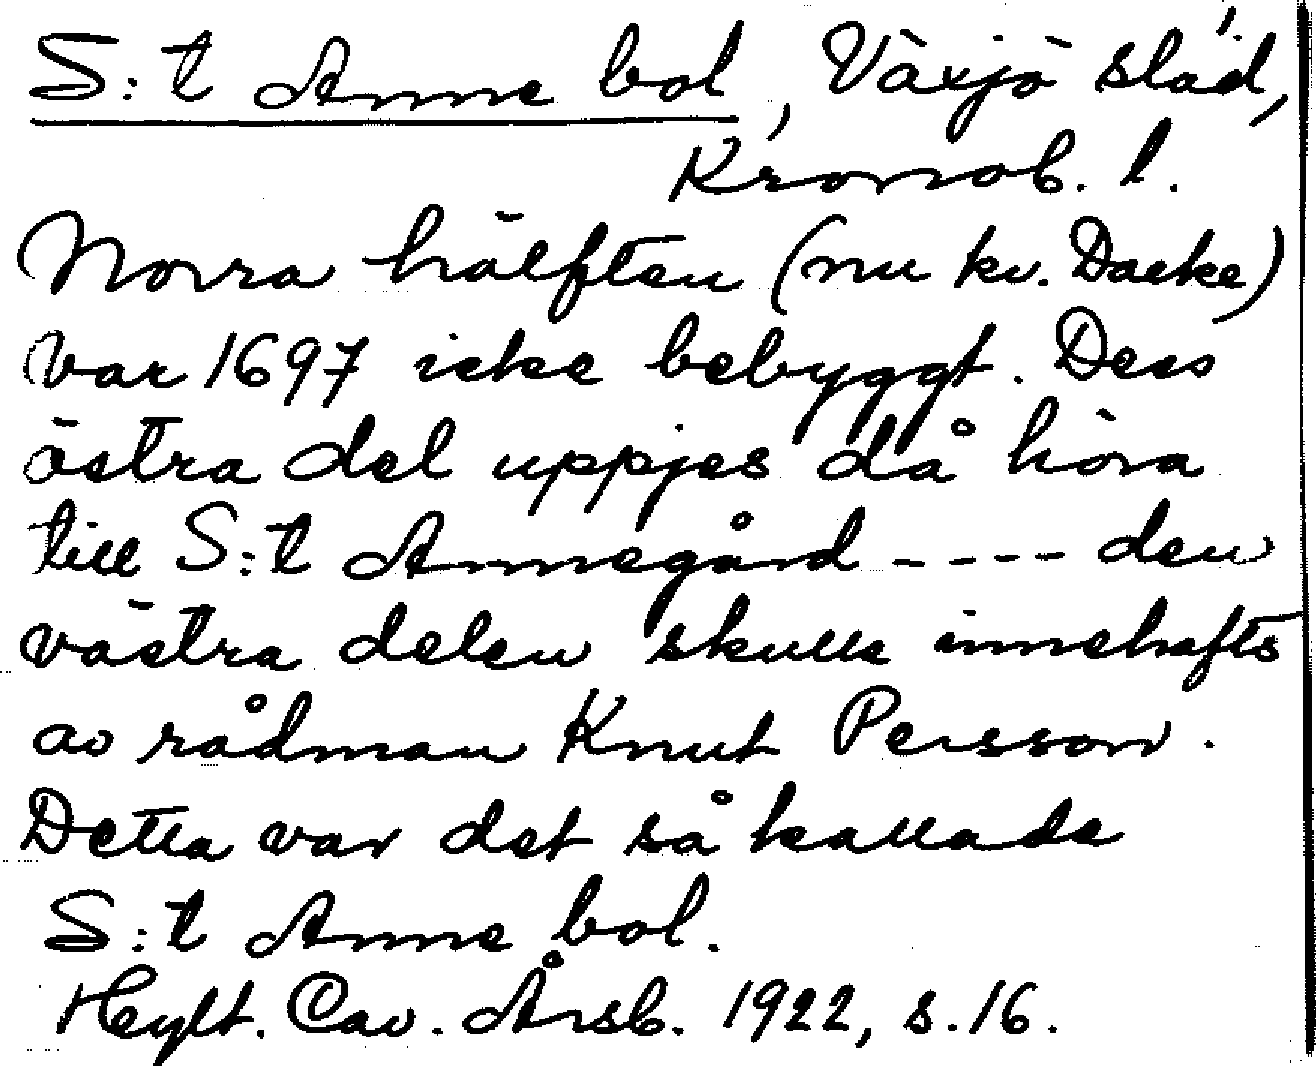 S:t Anne bol, Växjö stad,
Kronob. l.
Norra hälften (nu kv. Dacke)
var 1697 icke bebyggt. Dess
östra del uppjes då höra
till S:t Annegård ---- den
västra delen skulle innehafts
av rådman Knut Persson.
Detta var det så kallade
S:t Anne bol.
Heylt. Cav. Årsb. 1922, s. 16.